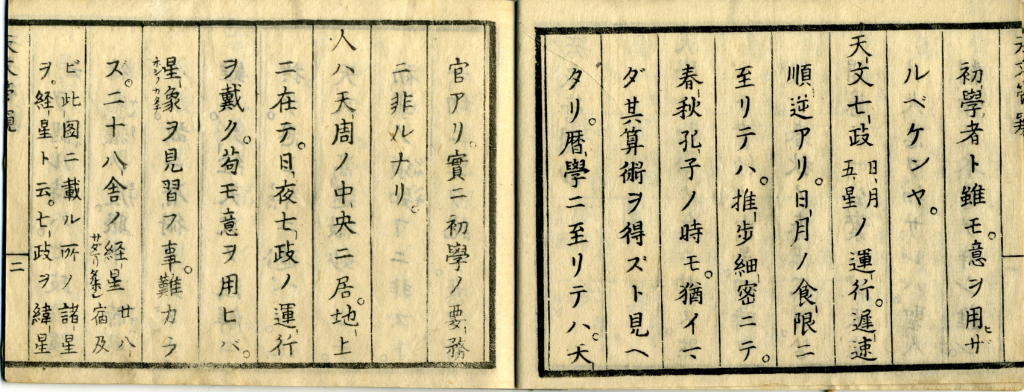 初學者ト雖モ。意ヲ用ヒザ
ルベケンヤ。
天文七政 日、月 五星 ノ運行。遲速
順逆アリ。日月ノ食限ニ
至リテハ。推歩細密ニテ。
春秋孔子ノ時モ。猶イマ
ダ其算術ヲ得ズト見ヘ
タリ。暦學ニ至リテハ。大
官アリ。實ニ初學ノ要務
ニ非ルナリ。
人ハ天周ノ中央ニ居。地上
ニ在テ。日夜七政ノ運行
ヲ戴ク。苟モ意ヲ用ヒバ。
星象ヲ見習フ事。難カラ
ズ。二十八舎ノ經星 廿八宿及
ビ此図ニ載ル所ノ諸星
ヲ。経星ト云。七政ヲ緯星
三